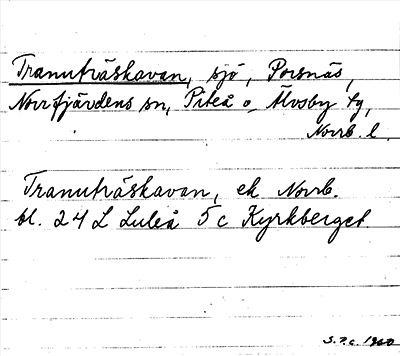 Tranuträskavan, sjö, Porsnäs,
Norrfjärdens sn, Piteå o. Älvsby tg,
Norrb. l.
Tranuträskavan, ek Norrb.
bl. 24 L Luleå 5 c Kyrkberget.
S.P.c. 1960